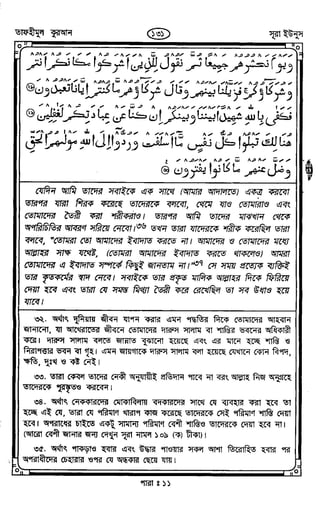 তাফহীমুল কুরআন ১৩১ সূরা ইউনুস
وَيَوْمَ نَحْشُرُهُمْ جَمِيعًا ثُمَّ نَقُولُ لِلَّذِينَ أَشْرَكُوا مَكَانَكُمْ أَنْتُمْ
وَشُرَكَاؤُكُمْ فَزَيَّلْنَا بَيْنَهُمْ وَقَالَ شُرَكَاؤُهُمْ مَا كُنْتُمْ إِيَّانَا تَعْبُدُونَ ۝
فَكَفَى بِاللَّهِ شَهِيدًا بَيْنَنَا وَبَيْنَكُمْ إِنْ كُنَّا عَنْ عِبَادَتِكُمْ لَغَفِلِينَ ۝
هُنَالِكَ تَبْلُوا كُلُّ نَفْسٍ مَا أَسْلَفَتْ وَرُدُّوا إِلَى اللَّهِ مَوْلَهُمُ الْحَقِّ
وَضَلَّ عَنْهُمْ مَا كَانُوا يَفْتَرُونَ ۝
যেদিন আমি তাদের সবাইকে এক সাথে (আমার আদালতে) একত্র করবো
তারপর যারা শিরক করেছে তাদেরকে বলবো, থেমে যাও তোমরাও এবং
তোমাদের তৈরী করা শরীকরাও। তারপর আমি তাদের মাঝখান থেকে
অপরিচিতির আবরণ সরিয়ে নেবো।৩৬ তখন তারা যাদেরকে শরীক করেছিল তারা
বলবে, "তোমরা তো আমাদের ইবাদাত করতে না। আমাদের ও তোমাদের মধ্যে
আল্লাহর সাক্ষ যথেষ্ট, (তোমরা আমাদের ইবাদাত করতে থাকলেও) আমরা
তোমাদের এ ইবাদাত সম্পর্কে কিছুই জানতাম না।"৩৭ সে সময় প্রত্যেক ব্যক্তিই
তার কৃতকর্মের স্বাদ নেবে। সবাইকে তার প্রকৃত মালিক আল্লাহর দিকে ফিরিয়ে
দেয়া হবে এবং তারা যে সমস্ত মিথ্যা তৈরী করে রেখেছিল তা সব উধাও হয়ে
যাবে।
৩২. অর্থাৎ দুনিয়ায় জীবন যাপন করার এমন পদ্ধতির দিকে তোমাদের আহবান
জানানো, যা আখেরাতের জীবনে তোমাদের দারুস সালাম বা শান্তির ভবনের অধিকারী
করে। দারুস সালাম বলতে জান্নাত বুঝানো হয়েছে এবং এর মানে হচ্ছে শান্তি ও
নিরাপত্তার ভবন বা গৃহ। এমন জায়গাকে দারুস সালাম বলা হয়েছে যেখানে কোন বিপদ,
ক্ষতি, দুঃখ ও কষ্ট নেই।
৩৩. তারা কেবল তাদের নেকী অনুযায়ীই প্রতিদান পাবে না বরং আল্লাহ নিজ অনুগ্রহে
তাদেরকে পুরস্কৃতও করবেন।
৩৪. অর্থাৎ নেককারদের মোকাবিলায় বদকারদের সাথে যে ব্যবহার করা হবে তা
হচ্ছে এই যে, তারা যে পরিমাণ খারাপ কাজ করেছে তাদেরকে সেই পরিমাণ শাস্তি দেয়া
হবে। অপরাধের চাইতে একটু সামান্য পরিমাণ বেশী শাস্তিও তাদেরকে দেয়া হবে না।
(আরো বেশী জানার জন্য দেখুন সূরা নামল ১০৯ (ক) টীকা)।
৩৫. অর্থাৎ পাকড়াও হবার এবং উদ্ধার পাওয়ার সকল আশা তিরোহিত হবার পর
অপরাধীদের চেহারার ওপর যে অন্ধকার ছেয়ে যায়।
পারা : ১১